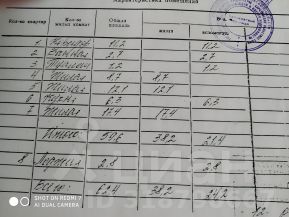 Характеристика помещения
Кол-во квартир Кол-во жилых комнат Общая площадь жилая
1 11,2 11,2
2 Ванная 2,7 2,7
3 Туалет 1,2 1,2
4 Жилая 8,7 8,7
5 Жилая 12,1 12,1
6 Кухня 6,3 6,3
7 Жилая 17,4 17,4
Итого: 59,6 38,2 21,4
8 Лоджия 2,8 2,8
Всего: 62,4 38,2 24,2
SHOT ON REDMI 7
AI DUAL CAMERA